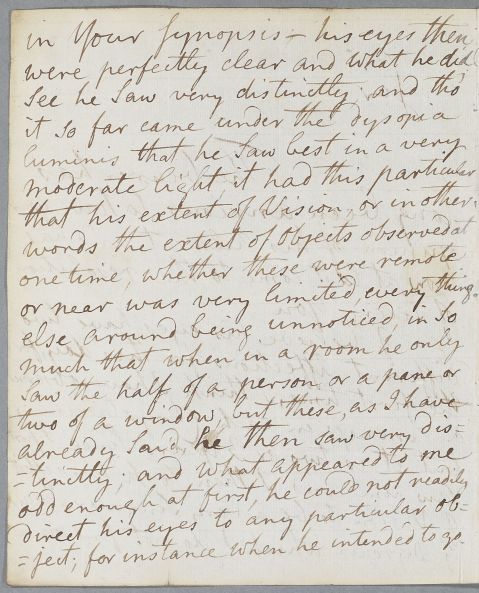 in Your Synopsis - his eyes then
were perfectly clear and what he did
See he Saw very distinctly; and tho
it so far came under the dysopia
luminis that he Saw best in a very
moderate light it had this particular
that his extent of Vision, or in other
words the extent of Objects observed at
one time, whether these were remote
or near was very limited, every thing
else around being unnoticed, in So
much that when in a room he only
Saw the half of a person or a pane or
two of a window, but these, as I have
already Said, he then saw very dis=
=tinctly; and what appeared to me
odd enough at first, he could not readily
direct his eyes to any particular ob=
=ject; for instance when he intended to go